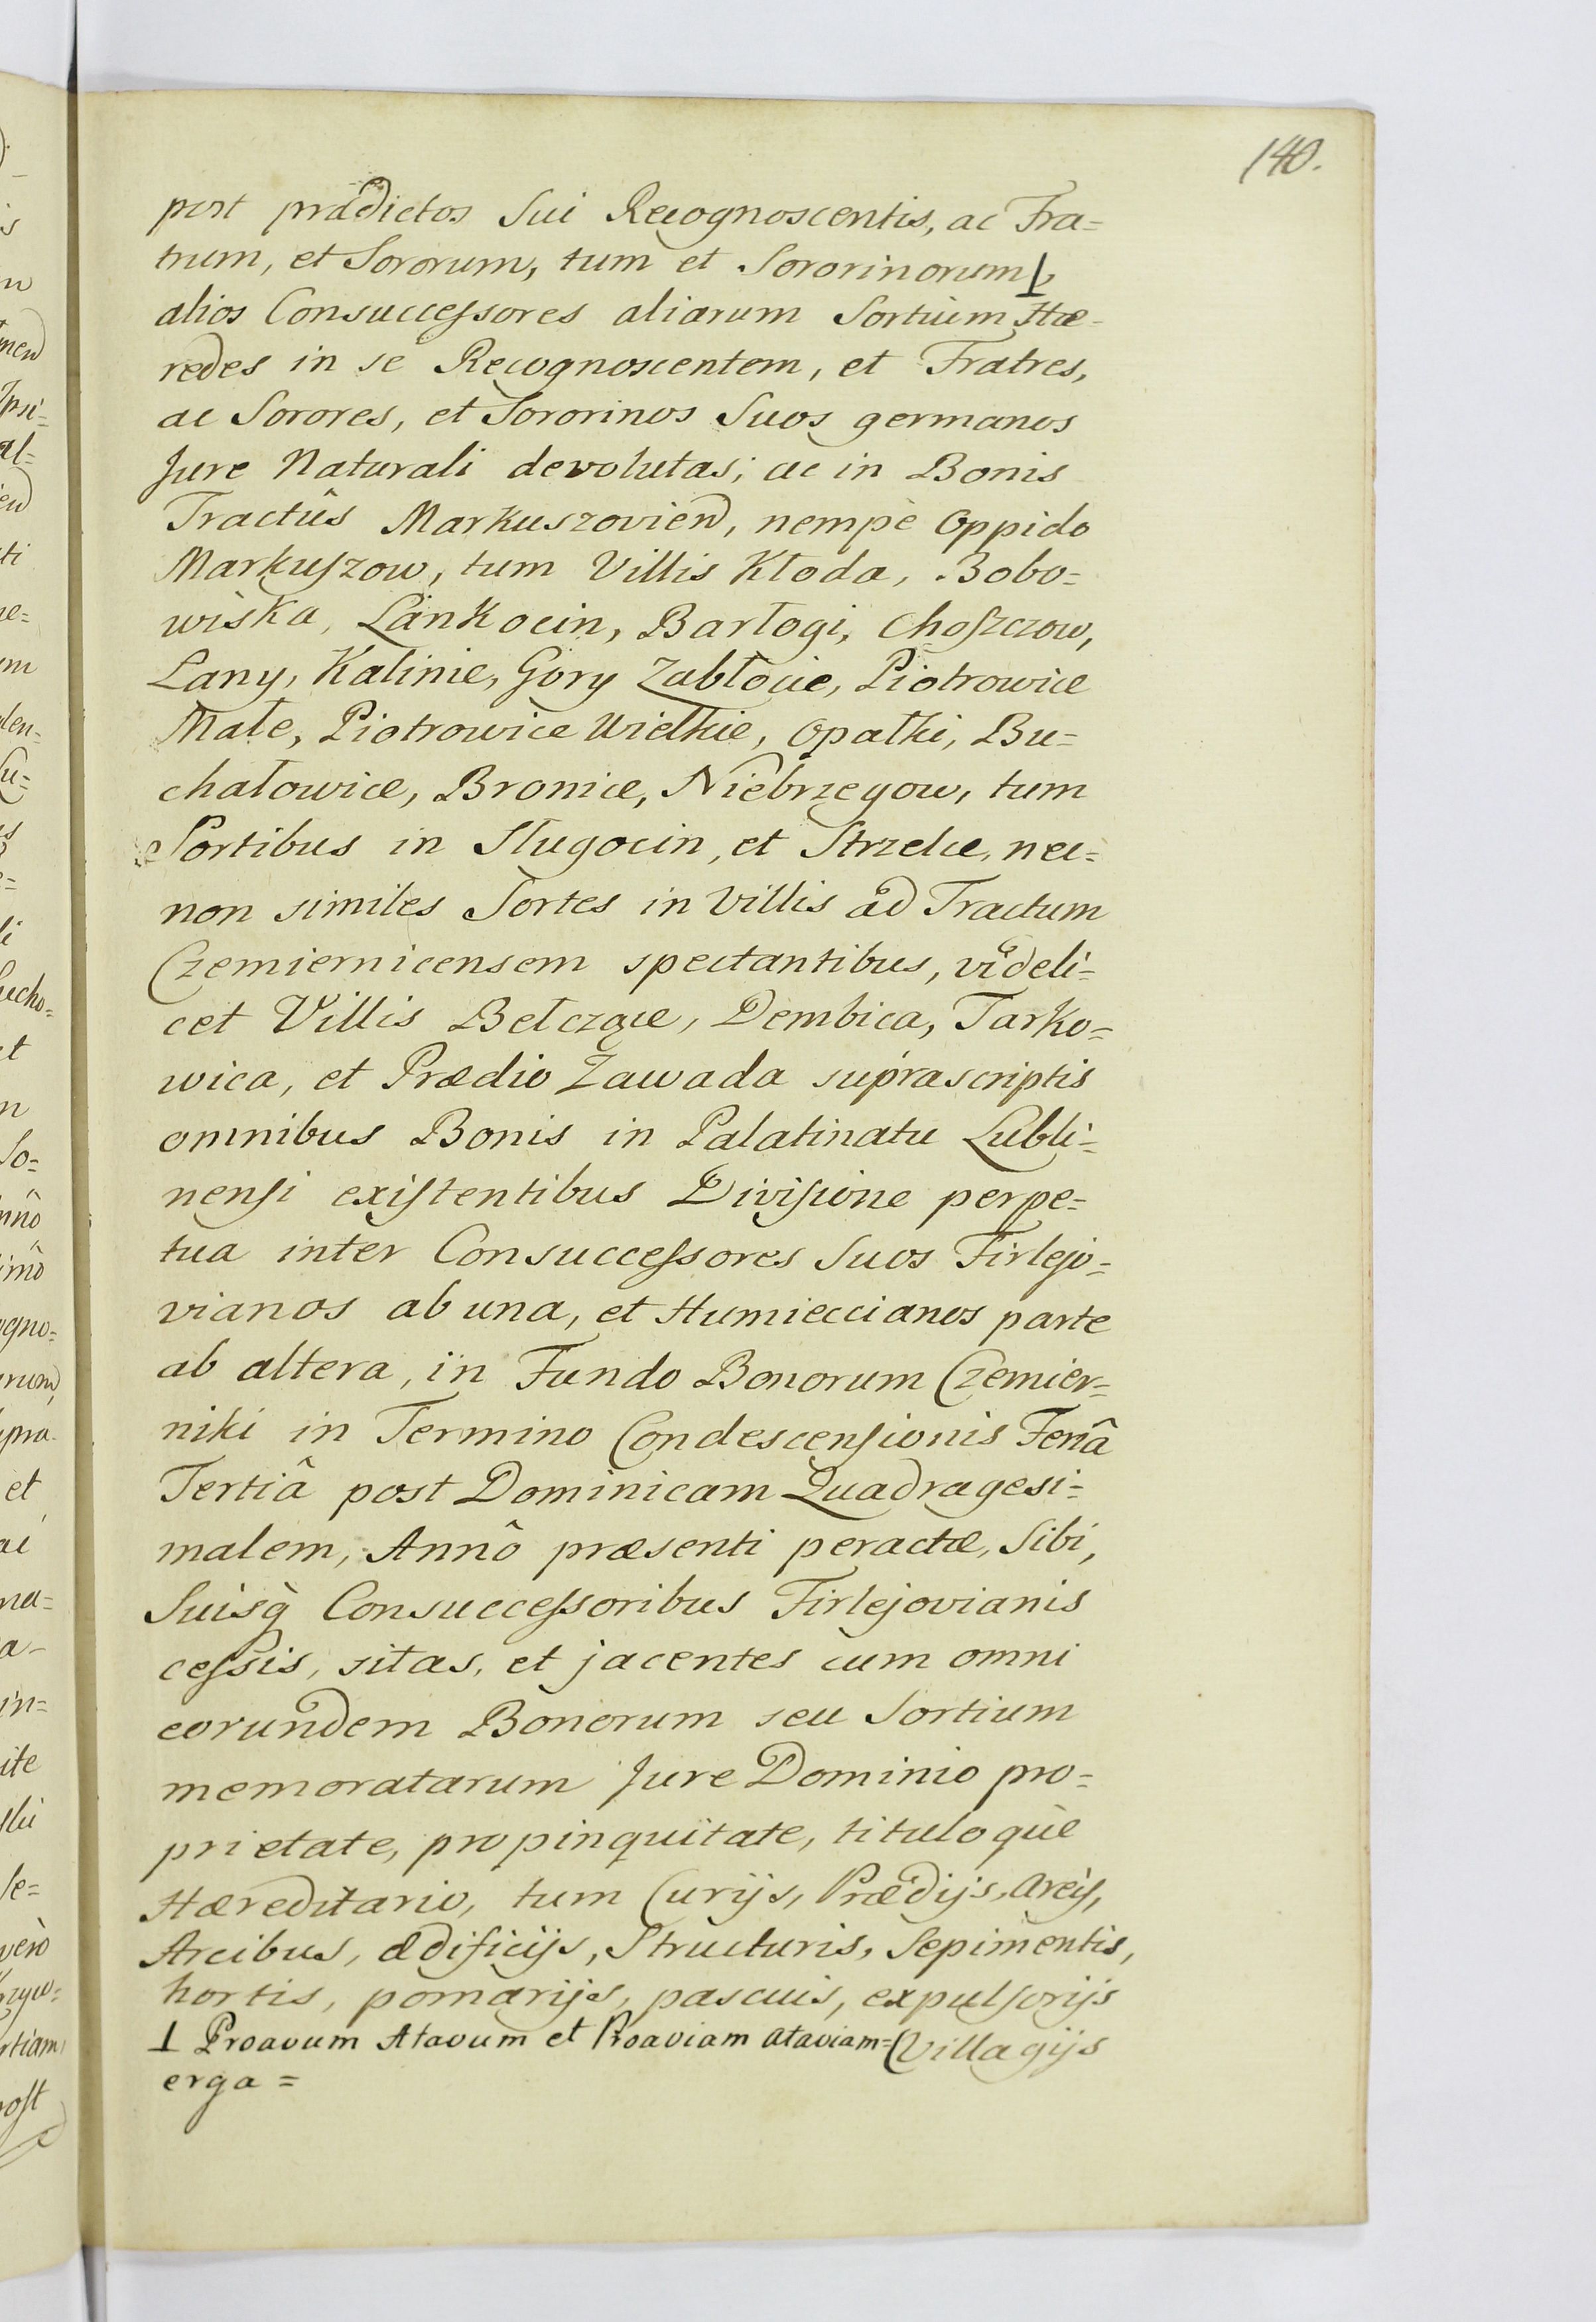 140.
post prædictos Sui Recognoscentis, ac Fra=
trum, et Sororum, tum et Sororinorum ⊥,
alios Consuccessores aliarum Sortium Hæ=
redes in se Recognoscentem, et Fratres,
ac Sorores, et Sororinos Suos germanos
Jure Naturali devolutas; ac in Bonis
Tractûs Markuszovien, nempè Oppido
Markuszow, tum Villis Kłoda, Bobo=
wiska, Lánkocin, Barłogi, Choszczow,
Lany, Kalinie, Gory Zabłocie, Piotrowice
Małe, Piotrowice Wielkie, Opatki, Bu=
chałowice, Bronice, Niebrzegow, tum
Sortibus in Sługocin, et Strzelce, nec=
non similes Sortes in Villis ad Tractum
Czemiernicensem spectantibus, videli=
cet Villis Bełczące, Dembica, Tarko=
wica, et Prædio Zawada supràscriptis
omnibus Bonis in Palatinatu Lubli=
nensi existentibus Divisione perpe=
tua inter Consuccessores Suos Firlejo=
vianos ab una, et Humieccianos parte
ab altera, in Fundo Bonorum Czemier=
niki in Termino Condescensionis Feriâ
Tertiâ post Dominicam Quadragesi=
malem, Annô præsenti peractæ, Sibi,
Suisq̀ Consuccessoribus Firlejovianis
cessis, sitas, et jacentes cum omni
eorundem Bonorum seu Sortium
memoratarum Jure Dominio pro=
prietate, propinquitate, tituloquè
Hæreditario, tum Curijs, Prædijs, Areis,
Arcibus, ædificijs, Structuris, Sepimentis,
hortis, pomarijs, pascuis, expulsorijs
⊥ Proavum Atavum et Proaviam Ataviam= (Villagijs
erga =